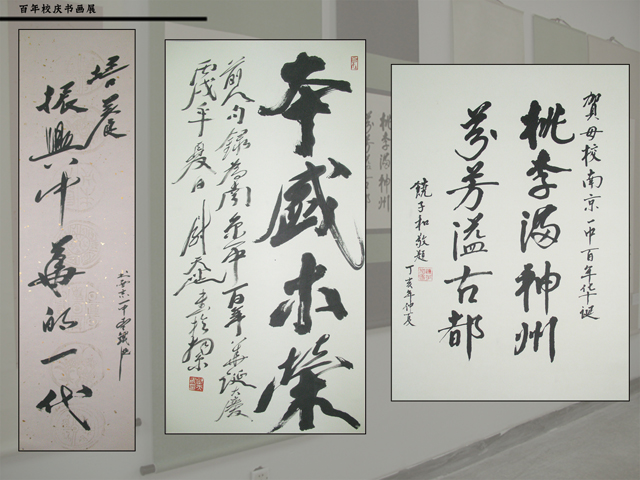 百年校庆书画展
培養
振興中華的一代
本盛末榮
前人句錄為南京一中百年華誕大慶
丙戌年夏日
賀母校南京一中百年华诞
桃李满神州
芬芳溢古都
饒子和敬題
丁亥年仲夏